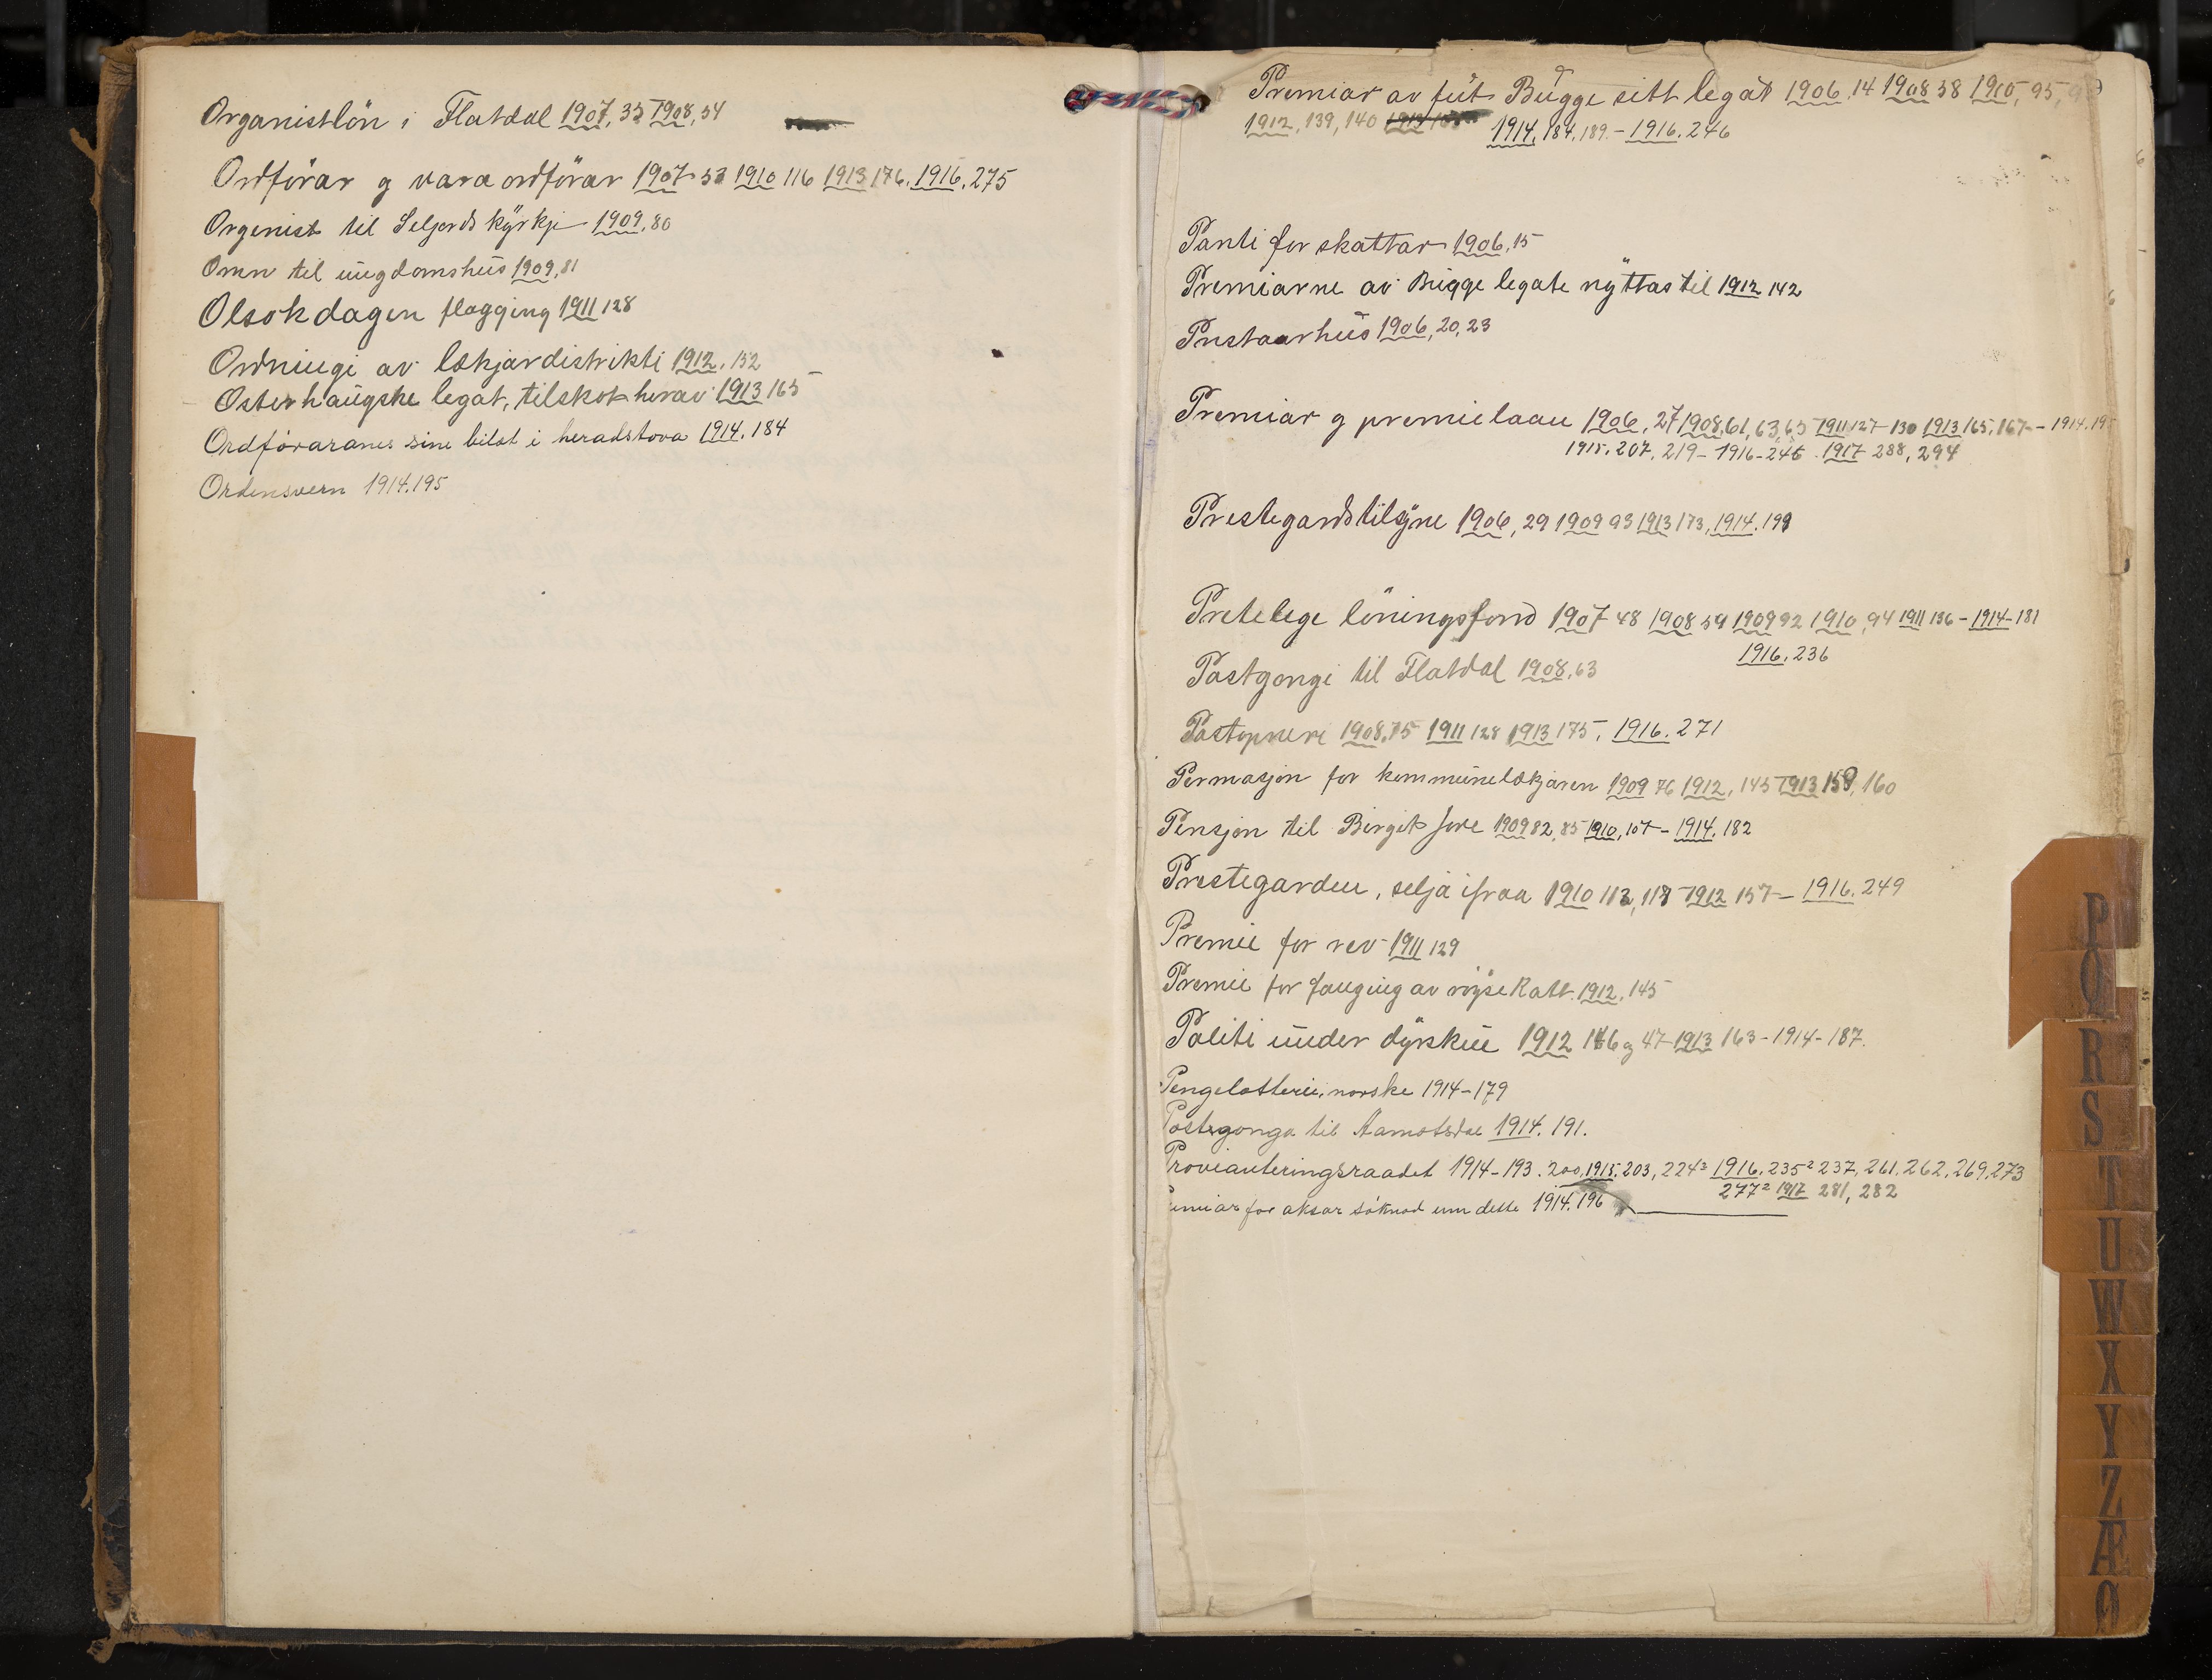 Organistlön i Flatdal 1907, 35 1908, 54
Ordförar g vara ordförar 1907 53 1910 116 1913 176. 1916. 275
Orgenist til Seljords kyrkje 1909, 80
Omn til ungdomshus 1909, 81
Olsokdagen flagging 1911 128
Ordningi av lækjardistrikti 1912. 152
Osterhaugske legat, tilskot herav 1913 165
Ordföraranes sine bilæt i heradstova 1914. 184
Ordensvern 1914. 195
Premiar av fut Bugge sitt legat 1906, 14 1908 58 1910, 95,
1912, 139, 140 1914, 184, 189. - 1916. 246
Panti for skattar 1906, 15
Premiarne av Bugge legate nyttas til 1912 142
Prestaarhus 1906, 20, 23
Premiar g premielaau 1906, 27 1908, 61, 63, 65 1911 127-130 1913 165, 167 - 1914. 195
1915. 207, 219 - 1916 - 246 . 1917 288, 294
Prestegardstilsyne 1906, 29 1909 93 1913 173, 1914. 199
Pretelege löningsfond 1907 48 1908 59 1909 92 1910, 94 1911 136 - 1914 - 181
1916. 236
Postgongi til Flatdal 1908, 63
Postopneri 1908, 75 1911 128 1913 175, 1916. 271
Permasjon for kommunelækjaren 1909 76 1912, 145 1913 158, 160
Pensjon til Birgit 1909 82, 85 1910, 107 - 1914. 182
Prestegarden, selja ifraa 1910 112, 118 1912 157 - 1916. 249
Premie for rev 1911 129
Premie for fanging av röysekatt 1912, 145
Politi under dyrskue 1912 146 g 47 1913 163 - 1914 - 187.
Pengelotterie, norske 1914 - 179
Postgonga til Aamotsdal 1914. 191.
Provianteringsraadet 1914 - 193. 200, 1915. 203, 224² 1916. 235² 237, 261. 262, 269, 273
277² 1917 281, 282
emiar for aksar söknad um desse 1914. 196
P
Q
R
S
T
U
W
X
Y
Z
Æ
Ø